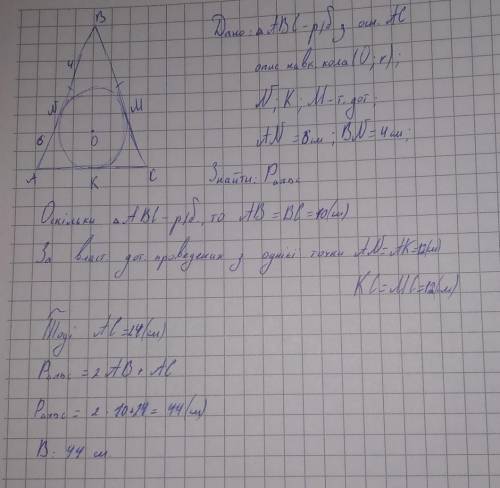 B
4
N
M
6
O
A
K
C
Дано: △ABC - р/б з осн. AC
опис навк. кола (O; r);
N; K; M - т. дот;
AN = 6см; BN = 4см;
Знайти: P
Оскільки △ABC - р/б, то AB = BC = 10(см)
За власт. дот. проведених з однієї точки AN = AK = 12(см)
KC = MC = 12(см)
Тоді AC = 24(см)
P = 2AB + AC
P = 2 · 10 + 24 = 44(см)
В. 44 см